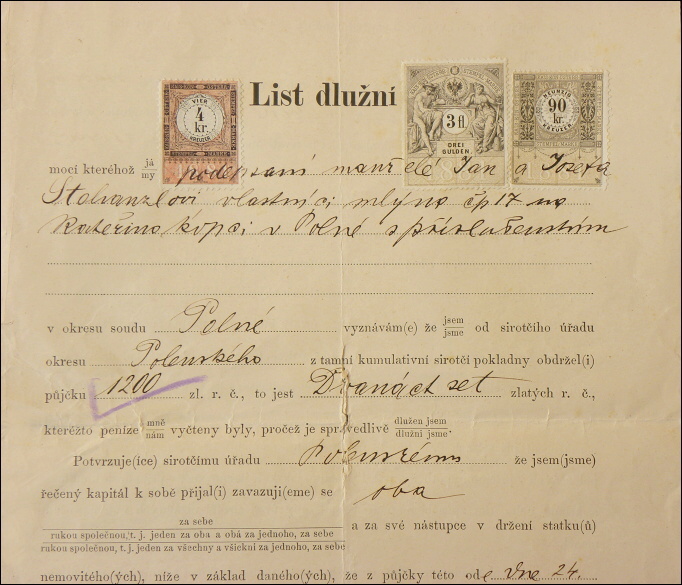 VIER 4 kr. KREUZER
List dlužní
3 fl DREI GULDEN
NEUNZIG 90 kr. KREUZER
mocí kteréhož já my podepsaní manželé Jan a Josefa
vlastníci mlýna čp 17 na
v Polné s příslušenstvím
v okresu soudu Polné vyznávám(e) že jsem jsme od sirotčího úřadu
okresu Polenského z tamní kumulativní sirotčí pokladny obdržel(i)
půjčku 1200 zl. r. č., to jest Dvanáct set zlatých r. č.,
kteréžto peníze mně nám vyčteny byly, pročež je spravedlivě dlužen jsem dlužni jsme.
Potvrzuje(íce) sirotčímu úřadu Polenskému že jsem(jsme)
řečený kapitál k sobě přijal(i) zavazuji(eme) se oba
za sebe
rukou společnou, t. j. jeden za oba a obá za jednoho, za sebe a za své nástupce v držení statku(ů)
rukou společnou, t. j. jeden za všechny a všickni za jednoho, za sebe
nemovitého(ých), níže v základ daného(ých), že z půjčky této od e dne 24.